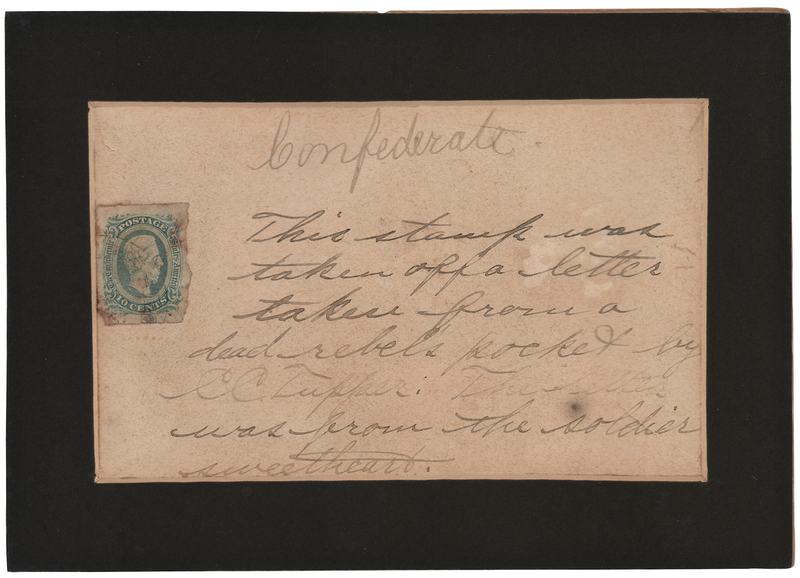 Confederate.
POSTAGE
The Confederate States of America
10 CENTS
This stamp was
taken off a letter
taken from a
dead rebels pocket by
C.C. Tupper. This letter
was from the soldier
sweetheart.